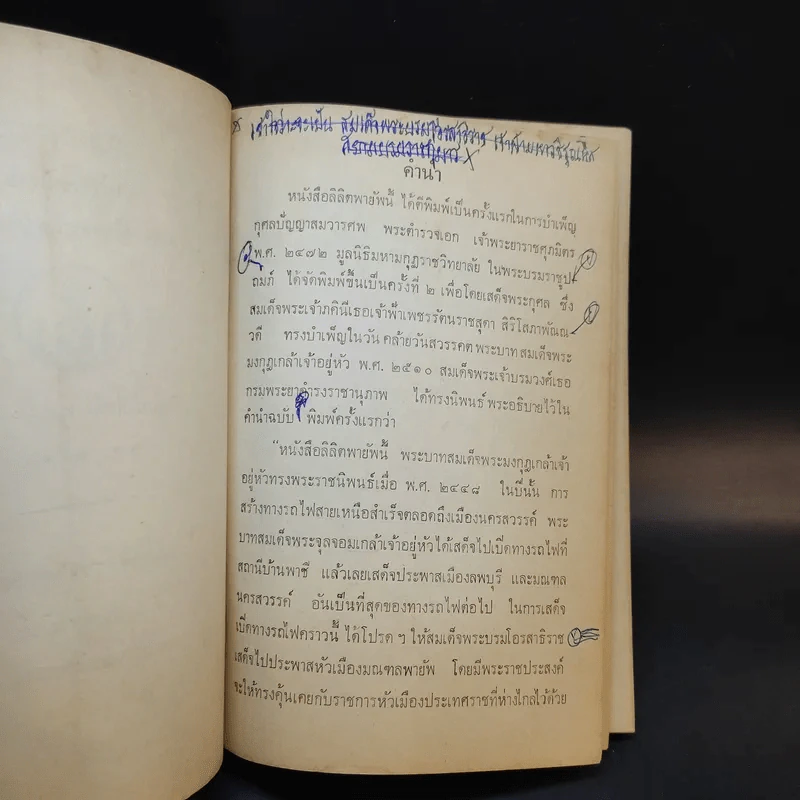 เข้าใจว่าจะเป็น สมเด็จพระบรม
คำนำ
หนังสือลิลิตพายัพนี้ ได้ตีพิมพ์เป็นครั้งแรกในการบำเพ็ญ
กุศลปัญญาสมวารศพ พระตำรวจเอก เจ้าพระยาราชศุภมิตร
พ.ศ. ๒๔๗๒ มูลนิธิมหามกุฎราชวิทยาลัย ในพระบรมราชูป-
ถมภ์ ได้จัดพิมพ์ขึ้นเป็นครั้งที่ ๒ เพื่อโดยเสด็จพระกุศล ซึ่ง
สมเด็จพระเจ้าภคินีเธอเจ้าฟ้าเพชรรัตนราชสุดา สิริโสภาพัณณ-
วดี ทรงบำเพ็ญในวันคล้ายวันสวรรคตพระบาทสมเด็จพระ
มงกุฎเกล้าเจ้าอยู่หัว พ.ศ. ๒๕๑๐ สมเด็จพระเจ้าบรมวงศ์เธอ
กรมพระยาดำรงราชานุภาพ ได้ทรงนิพนธ์พระอธิบายไว้ใน
คำนำฉบับ พิมพ์ครั้งแรกว่า
"หนังสือลิลิตพายัพนี้ พระบาทสมเด็จพระมงกุฎเกล้าเจ้า
อยู่หัวทรงพระราชนิพนธ์เมื่อ พ.ศ. ๒๔๔๘ ในปีนั้น การ
สร้างทางรถไฟสายเหนือสำเร็จตลอดถึงเมืองนครสวรรค์ พระ
บาทสมเด็จพระจุลจอมเกล้าเจ้าอยู่หัวได้เสด็จไปเปิดทางรถไฟที่
สถานีบ้านพาชี แล้วเลยเสด็จประพาสเมืองลพบุรี และมณฑล
นครสวรรค์ อันเป็นที่สุดของทางรถไฟต่อไป ในการเสด็จ
เปิดทางรถไฟคราวนี้ ได้โปรด ฯ ให้สมเด็จพระบรมโอรสาธิราช
เสด็จไปประพาสหัวเมืองมณฑลพายัพ โดยมีพระราชประสงค์
จะให้ทรงคุ้นเคยกับราชการหัวเมืองประเทศราชที่ห่างไกลไว้ด้วย